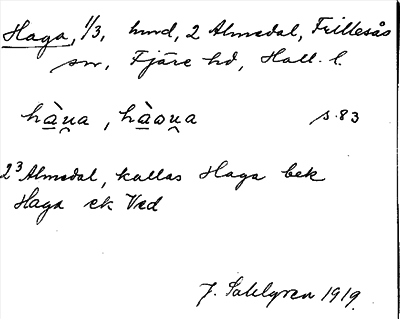 Haga, 1/3, hmd, 2 Almedal, Frillesås
sn, Fjäre hd, Hall. l.
hàu̯a, hàou̯a s. 83
2³ Almedal, kallas Haga bek
Haga ek Ved
J. Sahlgren 1919.